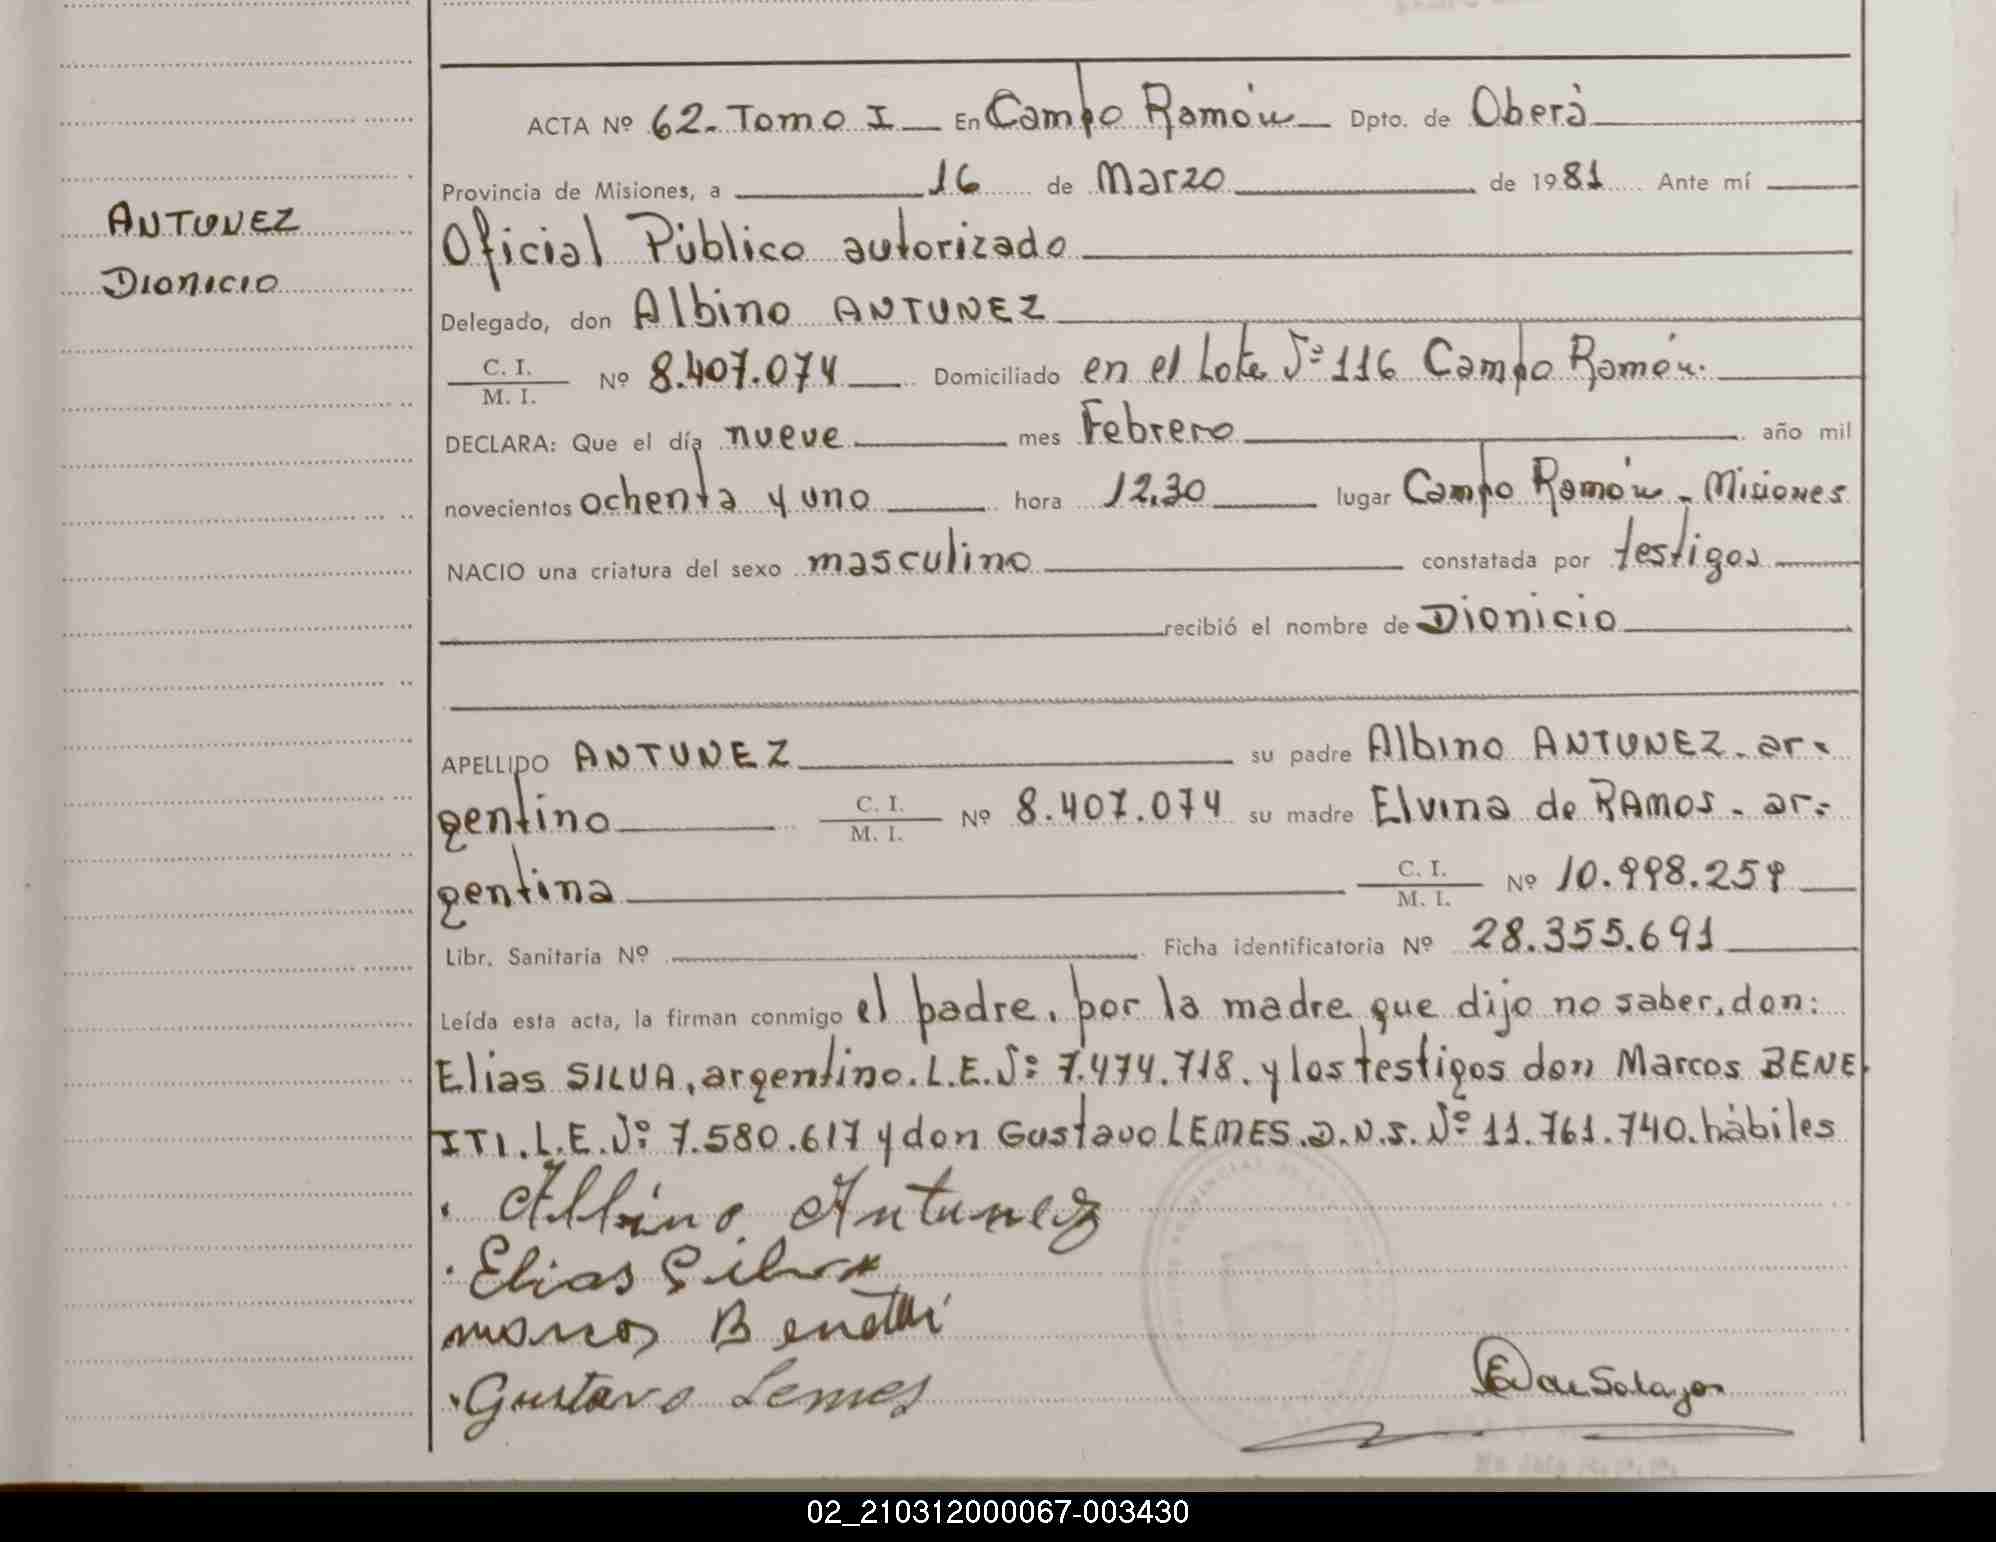 ACTA Nº 62. Tomo I En Campo Ramón Dpto. de Oberá
Provincia de Misiones, a 16 de Marzo de 1981 Ante mí
ANTUNEZ
DIONICIO
Oficial Público autorizado
Delegado, don Albino ANTUNEZ
C. I.
M. I. Nº 8.407.074 Domiciliado en el Lote Nº 116 Campo Ramón.
DECLARA: Que el día nueve mes Febrero año mil
novecientos ochenta y uno hora 12,30 lugar Campo Ramón - Misiones
NACIO una criatura del sexo masculino constatada por testigos
recibió el nombre de Dionicio
APELLIDO ANTUNEZ su padre Albino ANTUNEZ - ar-
gentino C. I.
M. I. Nº 8.407.074 su madre Elvina de RAMOS - ar=
gentina C. I.
M. I. Nº 10.998.259
Libr. Sanitaria Nº Ficha identificatoria Nº 28.355.691
Leída esta acta, la firman conmigo el padre, por la madre que dijo no saber, don:
Elias SILVA, argentino. L.E. Nº 7.474.718. y los testigos don Marcos BENE
ITI. L.E. Nº 7.580.617 y don Gustavo LEMES. D.N.I. Nº 11.761.740. hábiles
Albino Antunez
Elias Silva
marcos
Gustavo Lemes
02_210312000067-003430